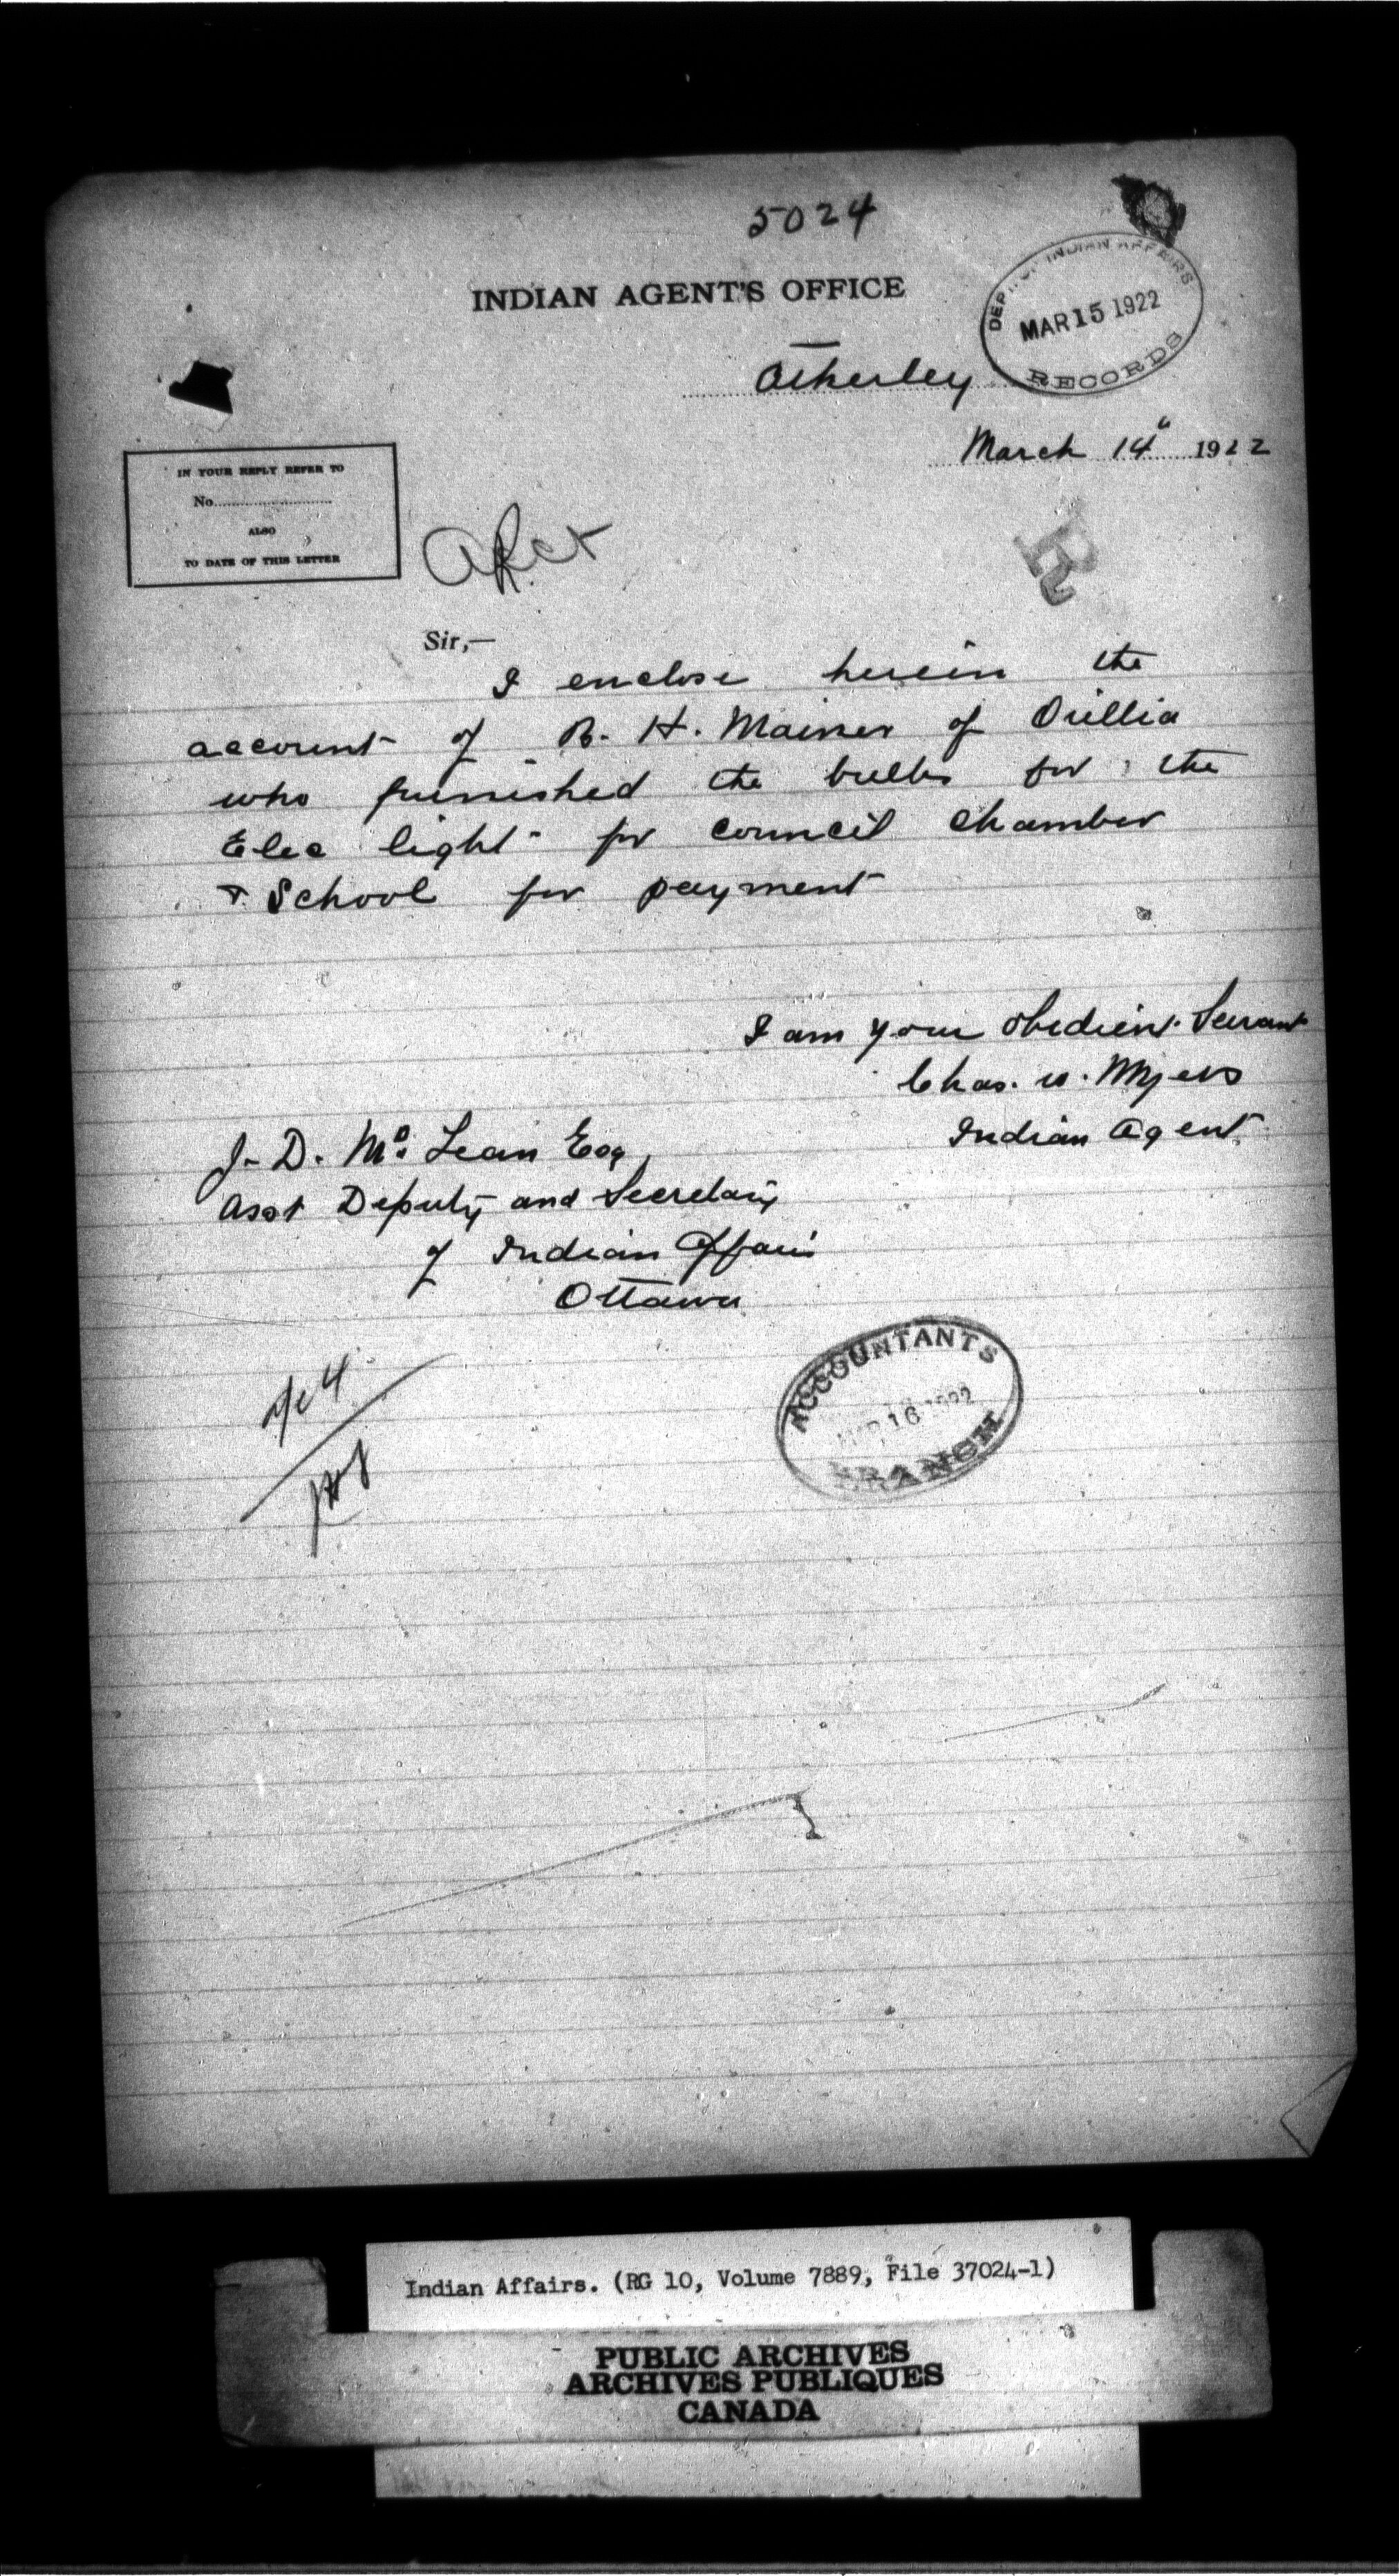 5024
INDIAN AGENT'S OFFICE
DEPT. OF INDIAN AFFAIRS
MAR 15 1922
RECORDS
Atherley
March 14" 1922
IN YOUR REPLY REFER TO
No.
ALSO
TO DATE OF THIS LETTER
R
Sir,—
I enclose herein the
account of R. H. Mainer of Orillia
who furnished the bulbs for the
Elec light for council chamber
& School for payment
I am your obedient Servant
Chas. W. Myers
Indian Agent
J. D. Mc Lean Esq,
Asst Deputy and Secretary
of Indian Affairs
Ottawa
ACCOUNTANTS
MAR 16 1922
BRANCH
Indian Affairs. (RG 10, Volume 7889, File 37024-1)
PUBLIC ARCHIVES
ARCHIVES PUBLIQUES
CANADA